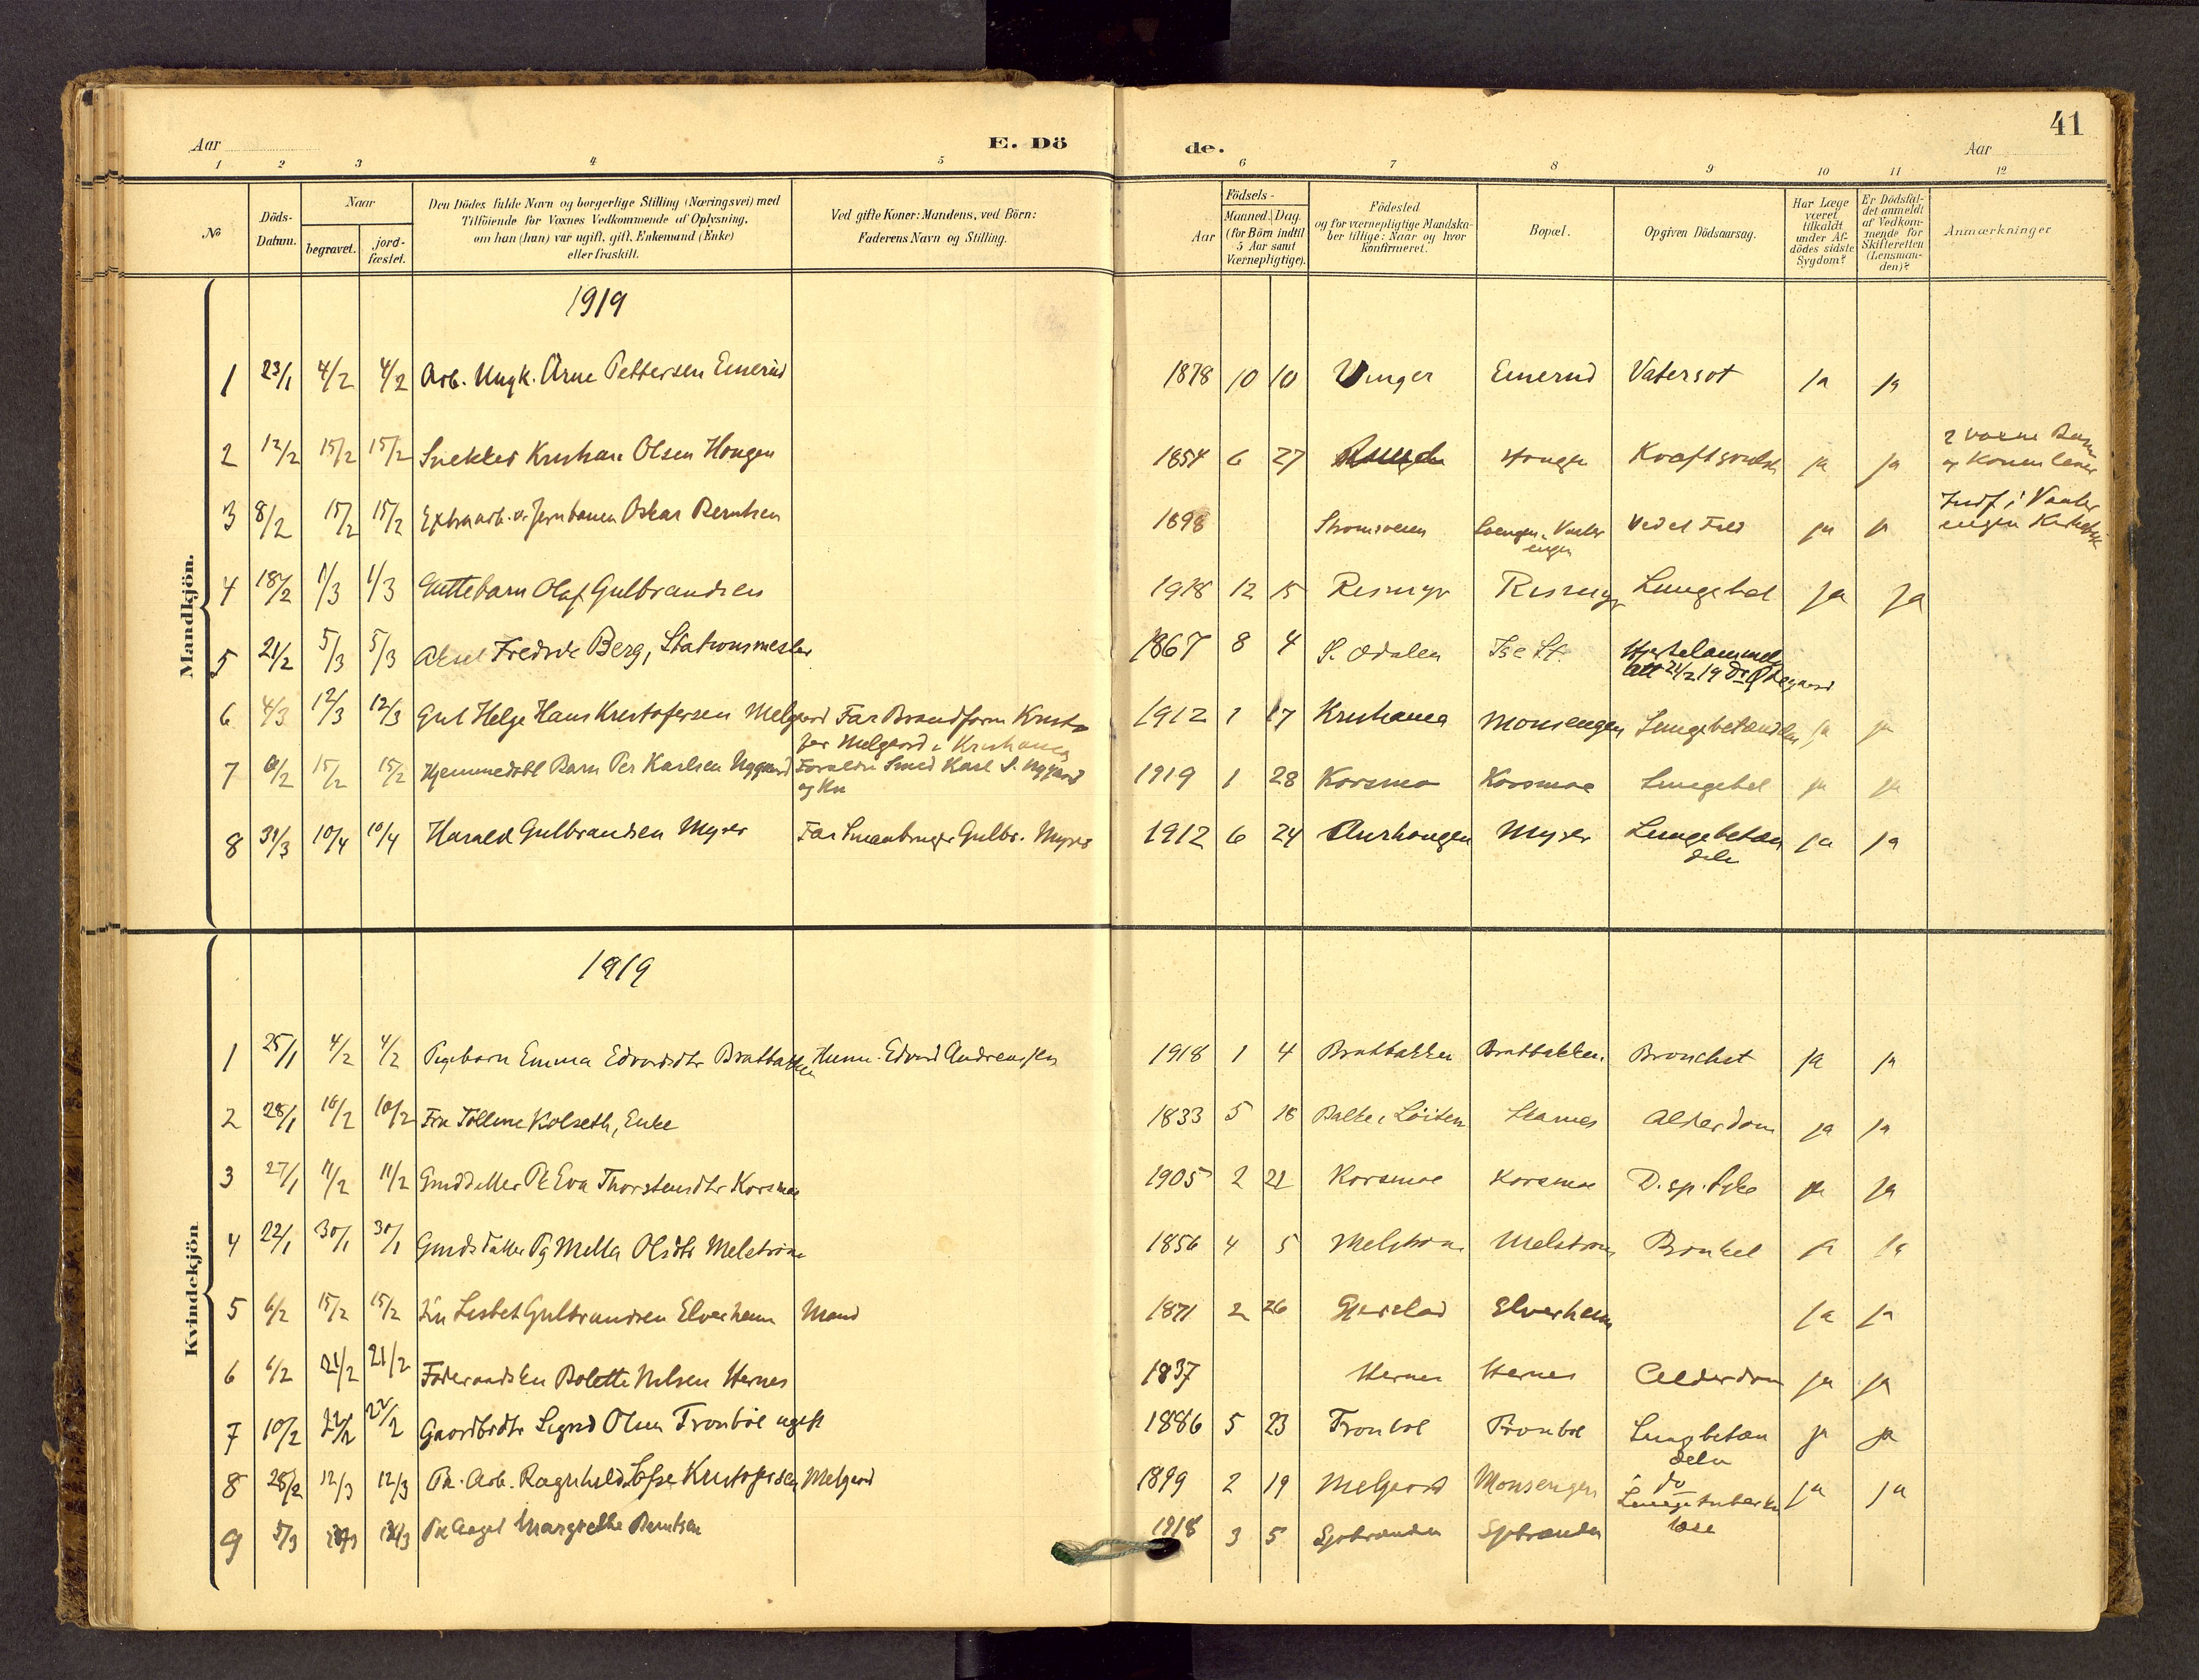 41
Aar
E. Dö
de.
Aar
1 2 3 4 5 6 7 8 9 10 11 12
№
Döds-
Datum.
Naar
begravet.
jord-
fæstet.
Den Dödes fulde Navn og borgerlige Stilling (Næringsvei) med
Tilföiende for Voxnes Vedkommende af Oplysning,
om han (hun) var ugift, gift, Enkemand (Enke)
eller fraskilt.
Ved gifte Koner: Mandens, ved Börn:
Faderens Navn og Stilling.
Födsels-
Aar
Maaned. Dag.
(for Börn indtil
5 Aar samt
Værnepligtige).
Födested
og for værnepligtige Mandska-
ber tillige: Naar og hvor
konfirmeret.
Bopæl.
Opgiven Dödsaarsag.
Har Læge
været
tilkaldt
under Af-
dödes sidste
Sygdom?
Er Dödsfal-
det anmeldt
af Vedkom-
mende for
Skifteretten
(Lensman-
den)?
Anmærkninger
Mandkjön.
1919
1 23/1 4/2 4/2 Arb. Ungk. Arne Pettersen Emerud 1878 10 10 Vinger Emerud Vatersot ja ja
2 12/2 15/2 15/2 Snekker Kristian Olsen Hougen 1854 6 27 Hougen ja ja 2 voxne Barn
og Konen lever
3 8/2 15/2 15/2 Extraarb. v. Jernbanen Oskar Berntsen 1898 Stromsveien Vaaler
engen Ved et Fald ja ja Indf. i Vaaler
engen Kirkebok
4 18/2 1/3 1/3 Guttebarn Olaf Gulbrandsen 1918 12 15 Resmyr Resmyr Lungebet ja ja
5 21/2 5/3 5/3 Aksel Fredrik Berg, Stationsmester 1867 8 4 S. Odalen Ise St. Hjertelammelse
att 21/2 19 Dr
6 4/3 12/3 12/3 Gut Helge Hans Kristofersen Melgaard Far Brandform Kristo
fer Melgaard i Kristiania 1912 1 17 Kristiania Monsengen Lungebetændelse ja ja
7 6/2 15/2 15/2 Hjemmedøbt Barn Per Karlsen Nygaard Forældre Smed Karl S. Nygaard
og Ku 1919 1 28 Korsmo Korsmoe Lungebet ja ja
8 31/3 10/4 10/4 Harald Gulbrandsen Myrer Far Smaabruger Gulbr. Myrer 1912 6 24 Aurhougen Myrer Lungebetæn
delse ja ja
Kvindekjön
1919
1 25/1 4/2 4/2 Pigebarn Emma Edvardsdtr Bratbakken Husm. Edvard Andreassen 1918 1 4 Bratbakken Bratbakken Bronchit ja ja
2 28/1 10/2 10/2 Fru Tolline Kolseth, Enke 1833 5 18 Balke i Løiten Skarnes Alderdom ja ja
3 27/1 11/2 11/2 Grddatter Pk Eva Thorstensdtr Korsmoe 1905 2 21 Korsmoe Korsmoe D. sp. Syke ja ja
4 22/1 30/1 30/1 Gaardsdatter Pg Mella Olsdtr Melstrøm 1856 4 5 Melstrøm Melstrøm ja ja
5 6/2 15/2 15/2 Lisbet Gulbrandsen Elverheim Mand 1871 2 26 Gjerstad Elverheim ja ja
6 6/2 21/2 21/2 Føderaadsku Bolette Nilsen Hernes 1837 Hernes Hernes Alderdom ja ja
7 10/2 22/2 22/2 Gaardbrdtr Sigrid Olsen Tronbøl ugift 1886 5 23 Tronbøl Tronbøl Lungbetæn
delse ja ja
8 28/2 12/3 12/3 Pk. Arb. Ragnhild Kristofersen Melgaard 1899 2 19 Melgaard Monsengen do
Lungetuberku
lose ja ja
9 5/3 Pk Aagot Margrethe Berntsen 1918 3 5 Sjøbranden Sjøbranden